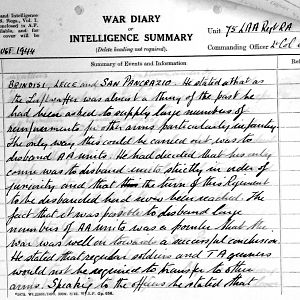 and Intelligence
S. Regs., Vol. I.
WAR DIARY
or
INTELLIGENCE SUMMARY
(Delete heading not required).
Unit 75 LAA Regt RA
Commanding Officer Lt Col
1944
Summary of Events and Information
BRINDISI, LECCE and SAN PANCRAZIO. He stated that as
the Luftwaffe was almost a thing of the past he
had been asked to supply large numbers of
reinforcements for other arms particularly infantry.
The only way this could be carried out was to
disband AA units. He had decided that his only
course was to disband units strictly in order of
juniority and that the turn of this Regiment
to be disbanded had now been reached. The
fact that it was possible to disband large
numbers of AA units was a pointer that the
war was well on towards a successful conclusion.
He stated that regular soldiers and TA gunners
would not be required to transfer to other
arms. Speaking to the officers he stated that